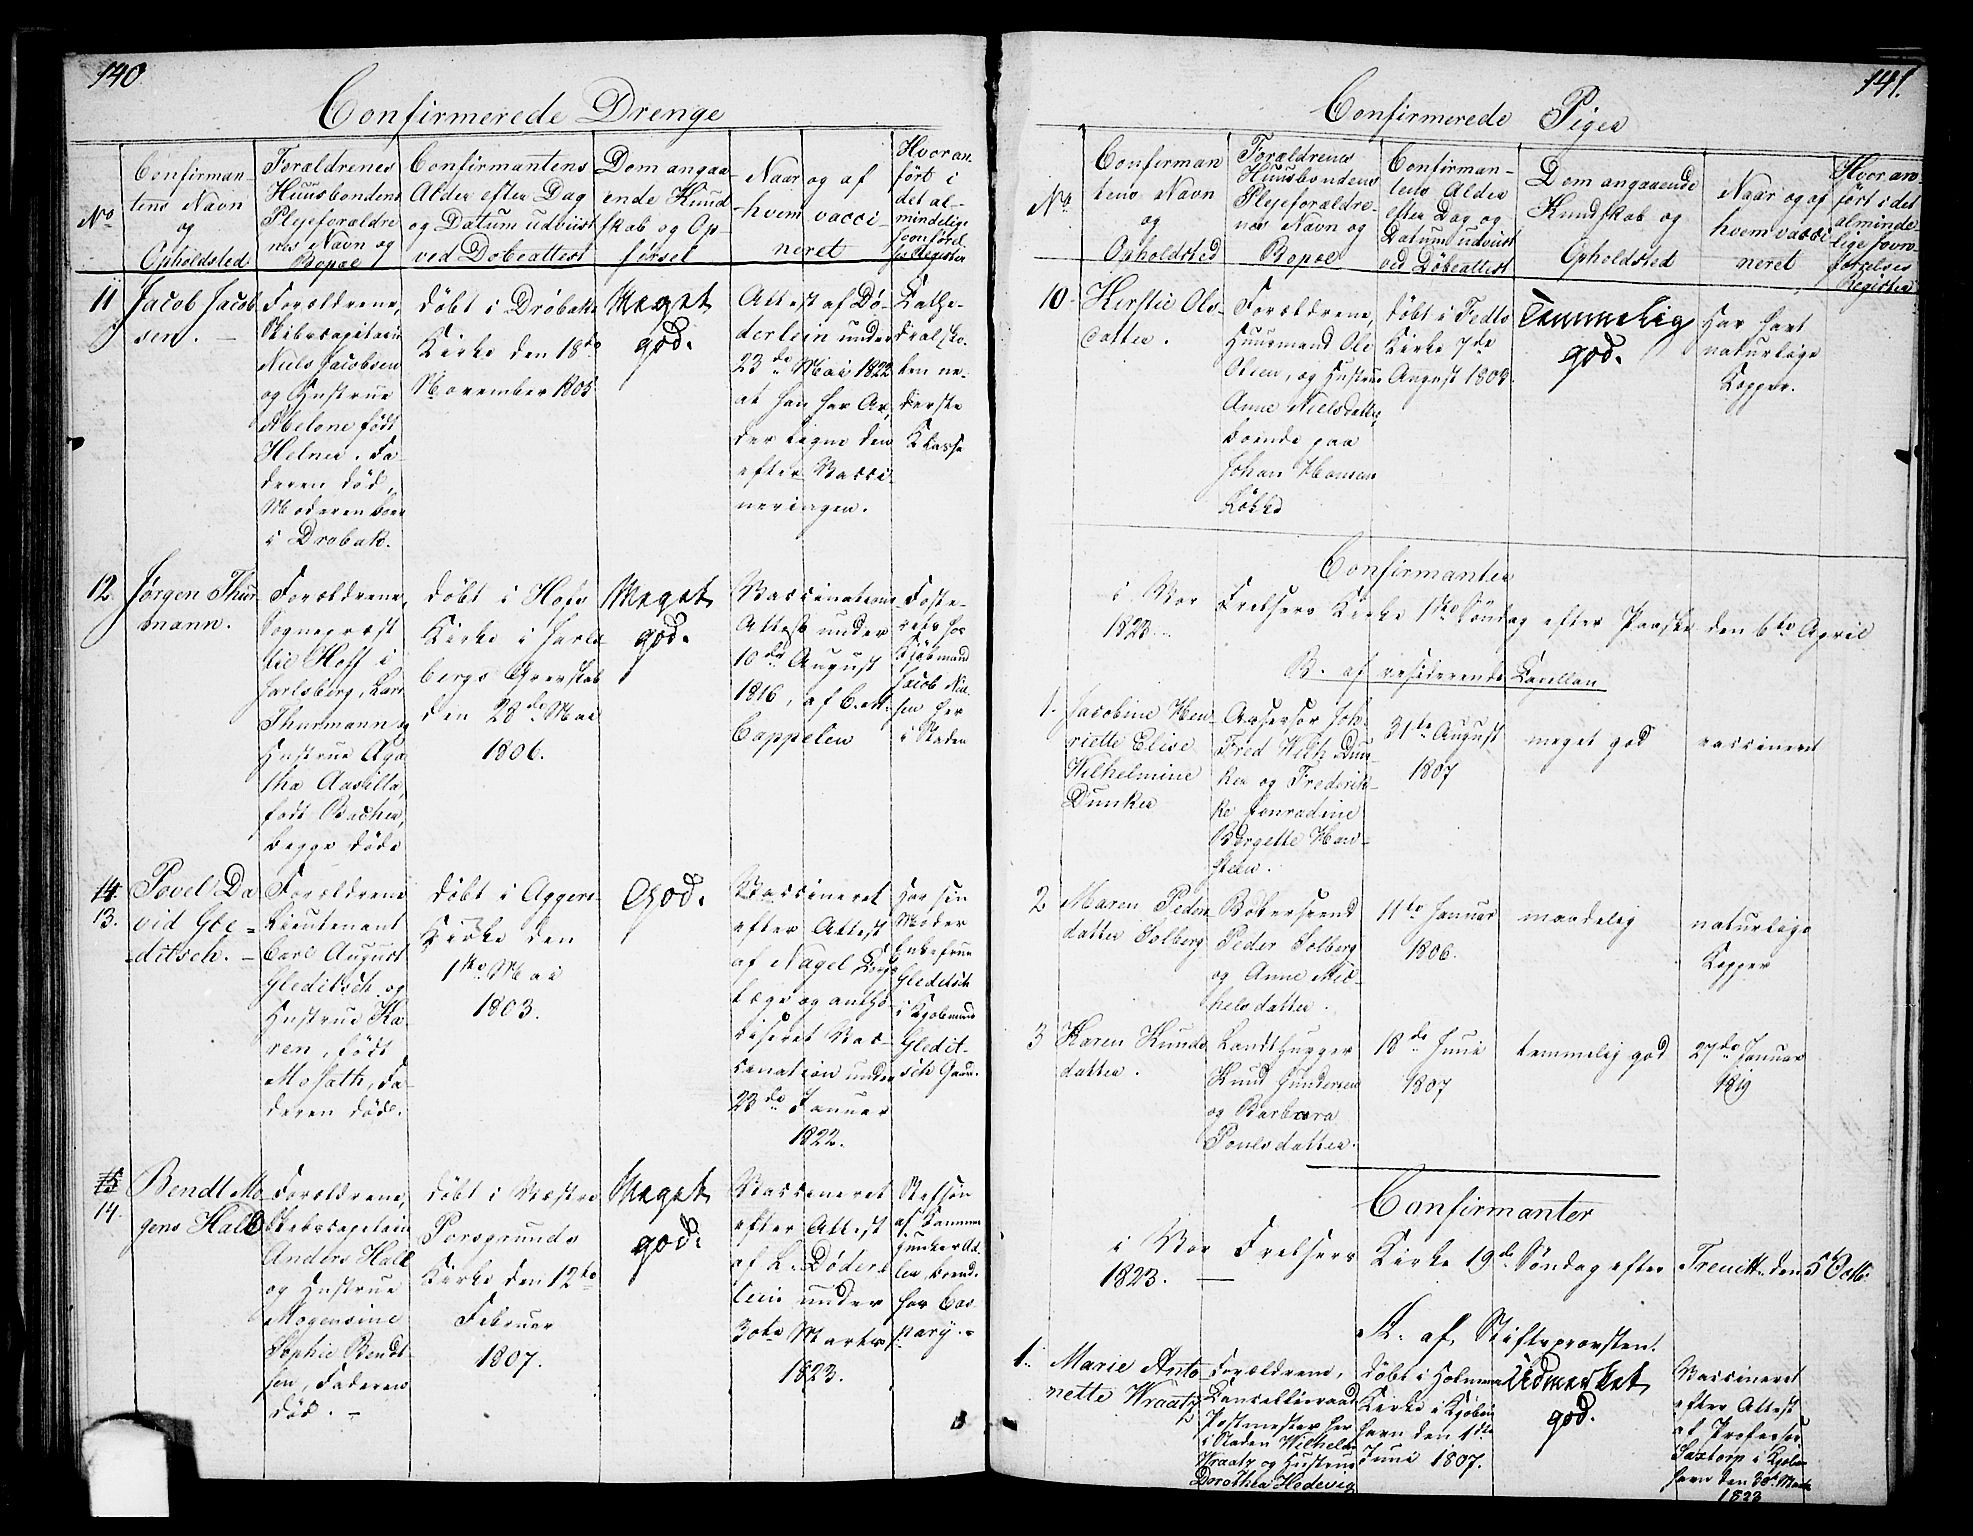 140.
Confirmerede Drenge
No
Confirman-
tens Navn
og
Opholdsted
Forældrenes
Huusbondens
Plejeforældre
nes Navn og
Bopæl
Confirmantens
Alder efter Dag
og Datum udviist
ved Døbeattest
Dom angaa-
ende Kund
skab og Op-
førsel
Naar og af
hvem vacci
neret
Hvor an-
ført i
det al-
mindelige
Jevnførel
ses Register
11
Jacob Jacob
sen. -
Forældrene,
Skibscapitain
Niels Jacobsen
og Hustrue
Abelone født
Helner. Fa-
deren død,
Moderen boer
i Drøbak.
døbt i Drøbaks
Kirke den 18de
November 1805
Meget
god.
Attest af Dø-
derlein under
23de Mai 1822
at han har Ar,
der ligne den
efter Vacci-
neringen.
Kathe-
dralsko-
len ne-
derste
Klasse
12.
Jørgen Thur-
mann.
Forældrene,
Sognepræst
til Hoff i
Jarlsberg, Lars
Thurmann og
Hustrue Aga-
tha Aasilla,
født Bacher,
begge døde
døbt i Hofs
Kirke i Jarls
bergs Grevskab
den 28de Mai
1806.
Meget
god.
Vaccinations
Attest under
10de August
1816, af C. M.
Cappelen
Foste-
resøn hos
Kjøbmand
Jacob Niel
sen her
i Staden
14
13.
Povel Da
vid Gle-
ditsch. -
Forældrene
Lieutenant
Carl August
Gleditsch og
Hustrue Ka-
ren, født
Mofath, Fa-
deren død.
døbt i Aggers
Kirke den
1ste Mai
1803.
God.
Vaccineret
efter Attest
af Nagel Corps
Læge og autho-
riseret Vac-
cination under
23de Januar
1822.
hos sin
Moder
Enkefrue
Gleditsch
i Kjøbmand
Gledit-
sch Gaard.
15
14.
Bendt Mo-
gens Hall
Forældrene,
Skibscapitain
Anders Hall
og Hustrue
Mogensine
Sophie Bendt
sen, Faderen
død. -
døbt i Væstre
Porsgrunds
Kirke den 12te
Februar
1807.
Meget
god.
Vaccineret
efter Attest
af L. Døder-
lein under
30te Marts
1823.
Stefsøn
af Kammer
junker Ad-
ler, boend.
hos Cas-
pary. -
141.
Confirmerede Piger
No
Confirman
tens Navn
og
Opholdsted
Forældrenes
Huusbondens
Plejeforældre-
nes Navn og
Bopæl
Confirman-
tens Alder
efter Dag og
Datum udviist
ved Døbeattest
Dom angaaende
Kundskab og
Opholdsted
Naar og af
hvem vacci
neret
Hvor an-
ført i det
alminde-
lige Jevn-
førelses
Register
10.
Kirstie Ols-
datter.
Forældrene,
Huusmand Ole
Olsen, og Hustrue
Anne Nielsdatter,
boende paa
Johan Hansens
Løkke
døbt i Fedts
Kirke 7de
August 1803.
Temmelig
god.
Har havt
naturlige
Kopper.
Confirmanter
i Vor Frelsers Kirke 1ste Søndag efter Paaske den 6te April
1823.
B. af residerende Capellan
1.
Jacobine Hen-
riette Elise
Wilhelmine
Dunker
Assessor Joh.
Fred Wilh Dun-
ker og Frederik-
ke Conradine
Birgette Han-
steen.
31te August
1807
meget god
vaccineret
2
Maren Peders
datter Solberg
Peder Solberg
og Anne Mic-
helsdatter.
11te Januar
1806.
maadelig
naturlige
Kopper
3
Karen Knuds
datter.
Landthugger
Knud Gundersen
og Barbrora
Poulsdatter.
18de Juni
1807
temmelig god
27de Januar
1819
Confirmanter
i Vor Frelsers Kirke 19de Søndag efter Trenitt. den 5 Octb.
1823.
A. af Stiftsprovsten.
1.
Marie Anto-
nette Wraatz
Forældrene,
Cancellieraad
Postmester her
i Staden Wilhelm
Wraatz og Hustrue
Dorothea Hedevig
døbt i Holmens
Kirke i Kjøben
havn den 1ste
Juni 1807.
Udmerket
god.
Vaccineret
efter Attest
af Professor
Saxtorp i Kjøben
havn den 30te Marts
1823